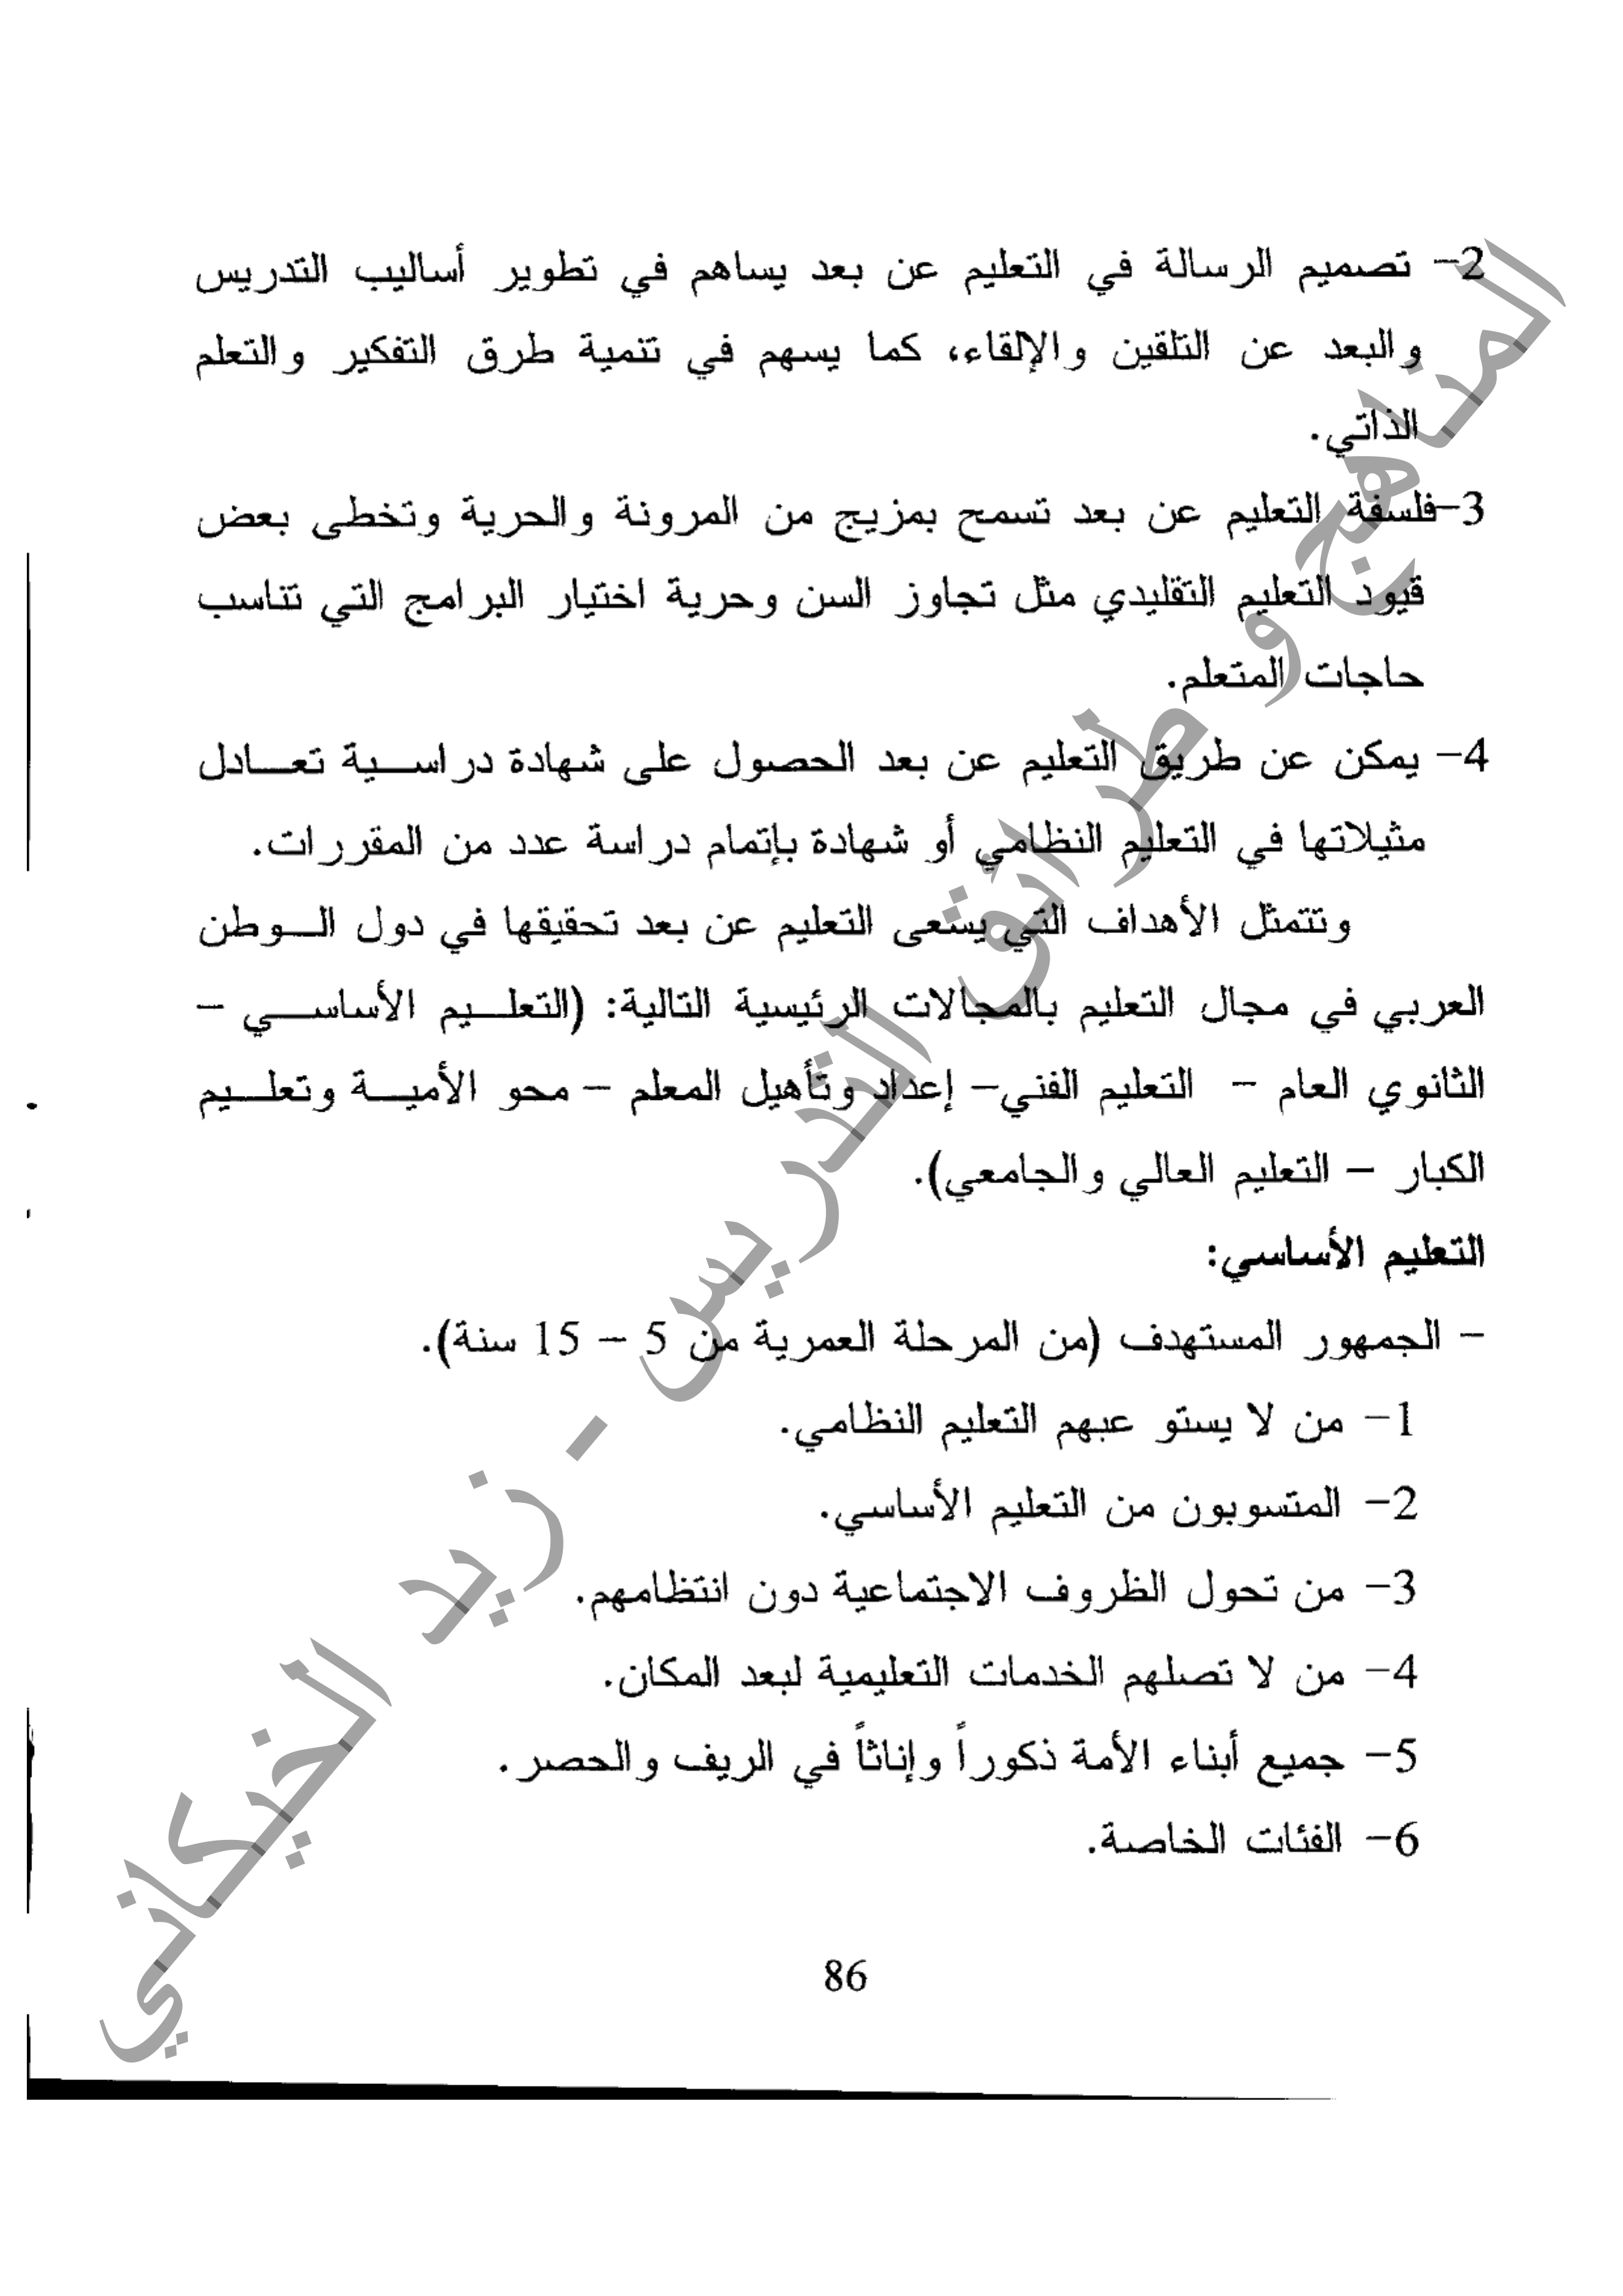 2- تصميم الرسالة في التعليم عن بعد يساهم في تطوير أساليب التدريس
والبعد عن التلقين والإلقاء، كما يسهم في تنمية طرق التفكير والتعلم
الذاتي.
3-فلسفة التعليم عن بعد تسمح بمزيج من المرونة والحرية وتخطى بعض
قيود التعليم التقليدي مثل تجاوز السن وحرية اختيار البرامج التي تناسب
حاجات المتعلم.
4- يمكن عن طريق التعليم عن بعد الحصول على شهادة دراســية تعــادل
مثيلاتها في التعليم النظامي أو شهادة بإتمام دراسة عدد من المقررات.
وتتمثل الأهداف التي يسعى التعليم عن بعد تحقيقها في دول الــوطن
العربي في مجال التعليم بالمجالات الرئيسية التالية: (التعلــيم الأساســي –
الثانوي العام – التعليم الفني– إعداد وتأهيل المعلم – محو الأميــة وتعلــيم
الكبار – التعليم العالي والجامعي).
التعليم الأساسي:
– الجمهور المستهدف (من المرحلة العمرية من 5 – 15 سنة).
1- من لا يستو عبهم التعليم النظامي.
2- المتسوبون من التعليم الأساسي.
3- من تحول الظروف الاجتماعية دون انتظامهم.
4- من لا تصلهم الخدمات التعليمية لبعد المكان.
5- جميع أبناء الأمة ذكوراً وإناثاً في الريف والحصر.
6- الفئات الخاصة.
86
المناهج و طرائق التدريس - زيد الخيكاني